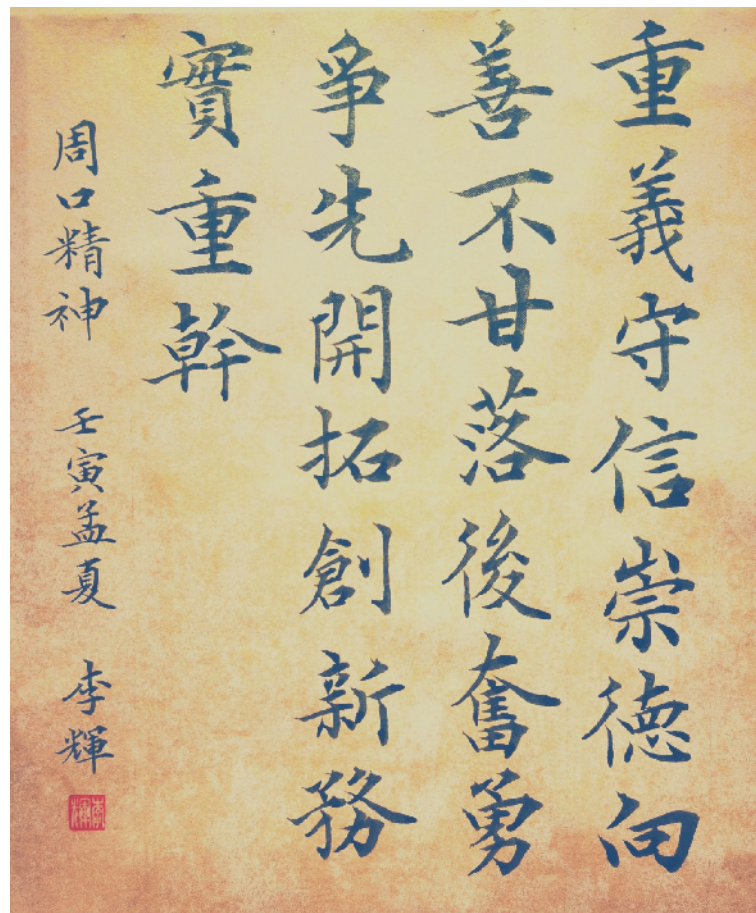 重義守信崇德向
善不甘落後奮勇
爭先開拓創新務
實重幹
周口精神 壬寅孟夏 李輝
李輝